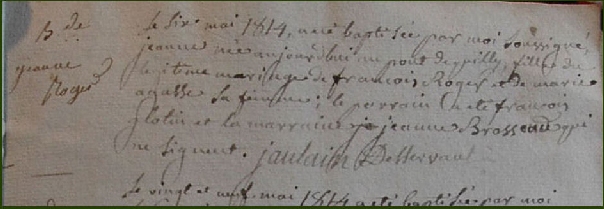 B. de
jeanne
Roger
Le six mai 1814, a été baptisée par moi soussigné,
jeanne née aujourdhui au pont de pilly, fille du
legitime mariage de francois Roger et de marie
agasse sa femme; le parrain a été francois
glotin et la marraine jeanne Brosseau qui
ne signent. jaulain Desservant
Le vingt et neuf mai 1814 a été baptisée par moi